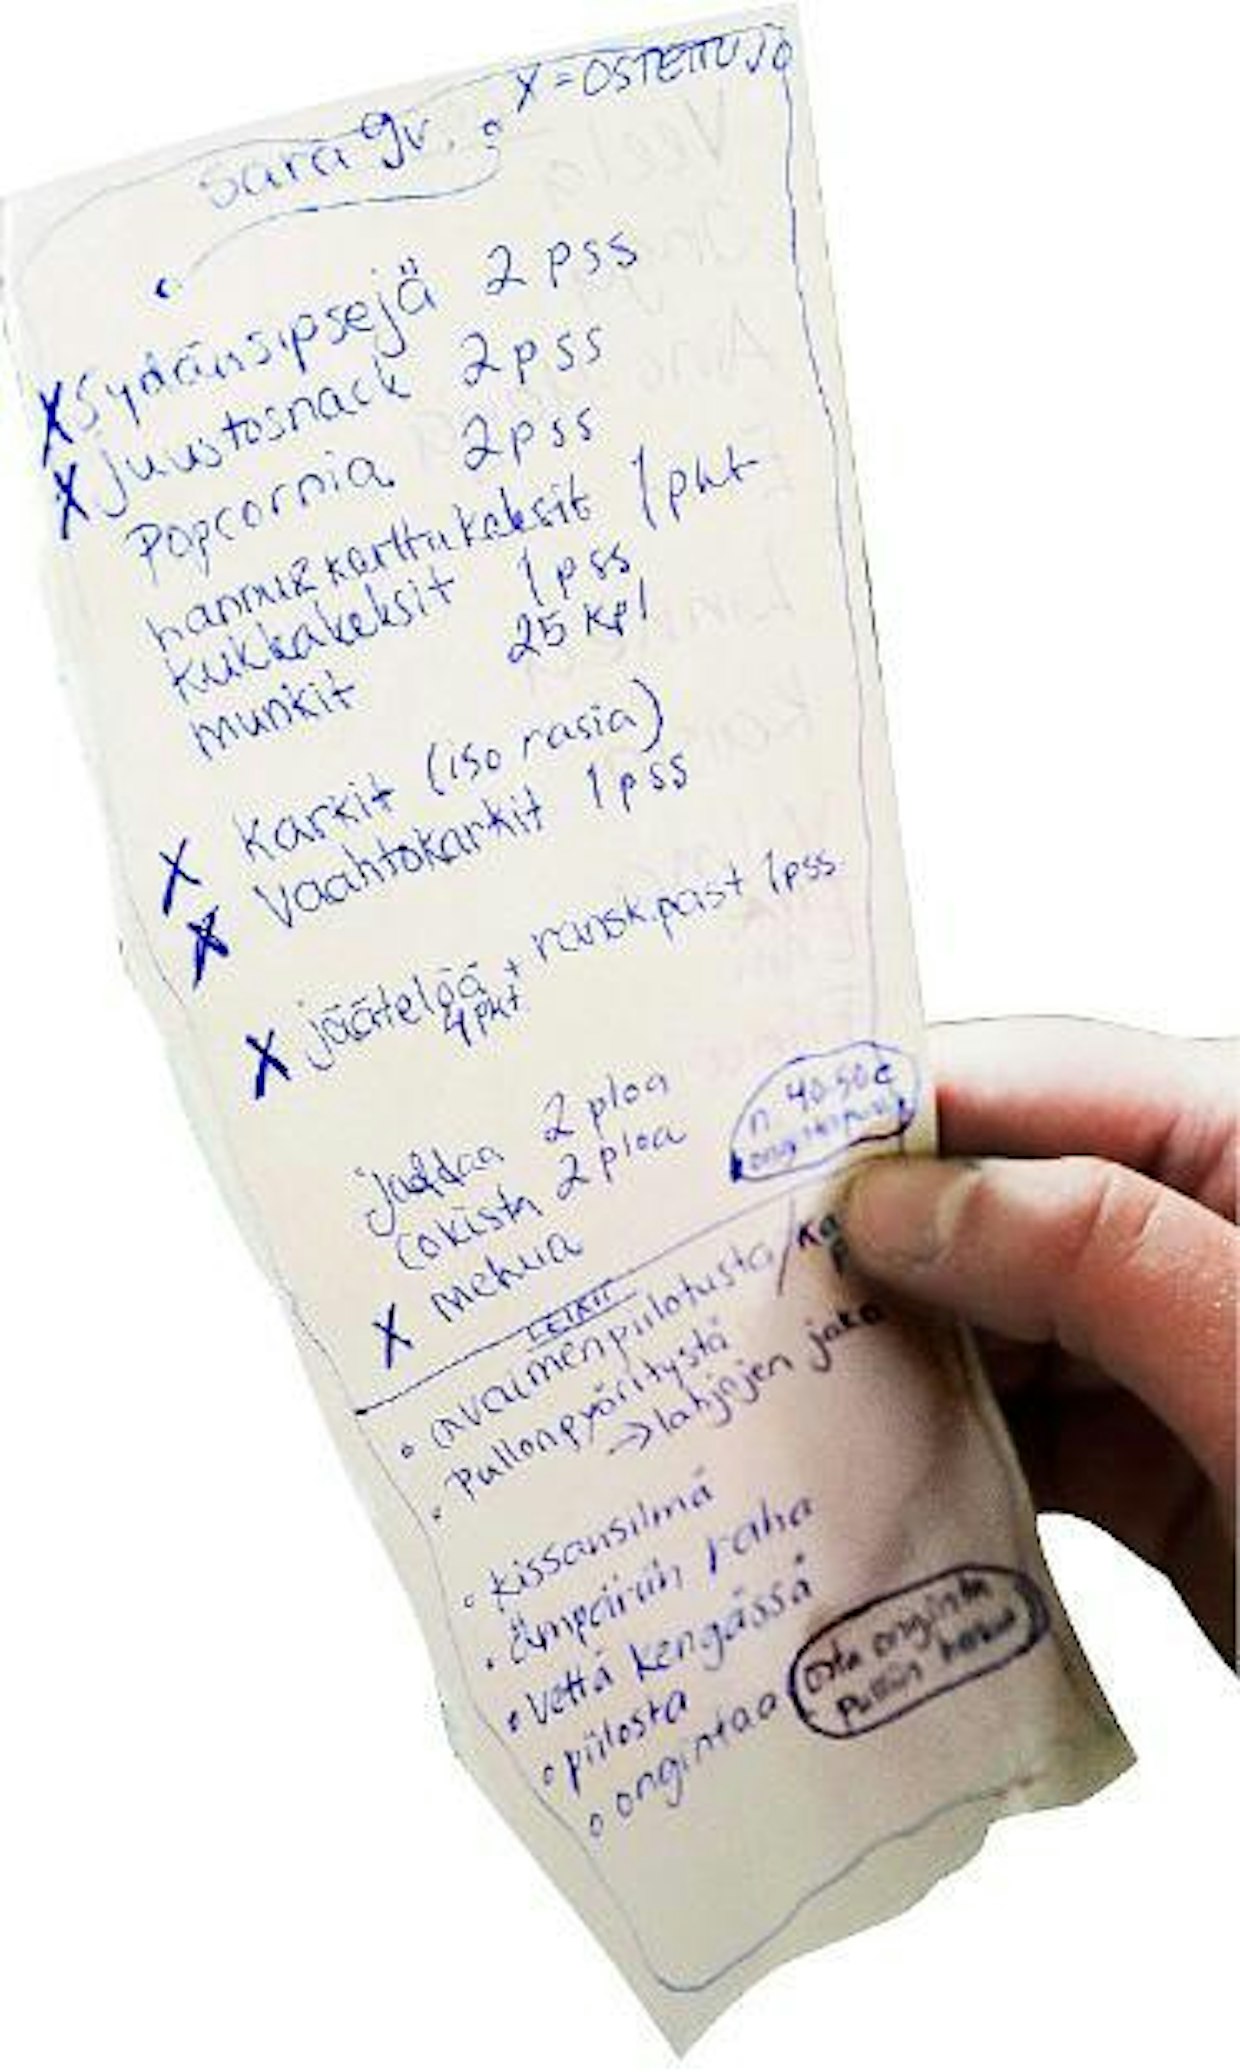 X = OSTETTU JO
Sara gr.
X Sydänsipsejä 2 pss
X Juustosnack 2 pss
Popcornia 2 pss
karttukeksit 1 pkt
kukkakeksit 1 pss
munkit 25 kpl
X Karkit (iso rasia)
X Vaahtokarkit 1 pss
X jäätelöä + ransk.past 1 pss
4 pkt
jaffaa 2 ploa
cokista 2 ploa
X mehua
n. 40-50 €
LEIKIT
• avaimenpiilotusta /
• Pullonpyöritystä
→ lahjojen
• kissansilmä
• Ämpäriin raha
• vettä kengässä
• piilosta
• ongintaa
osta onginta